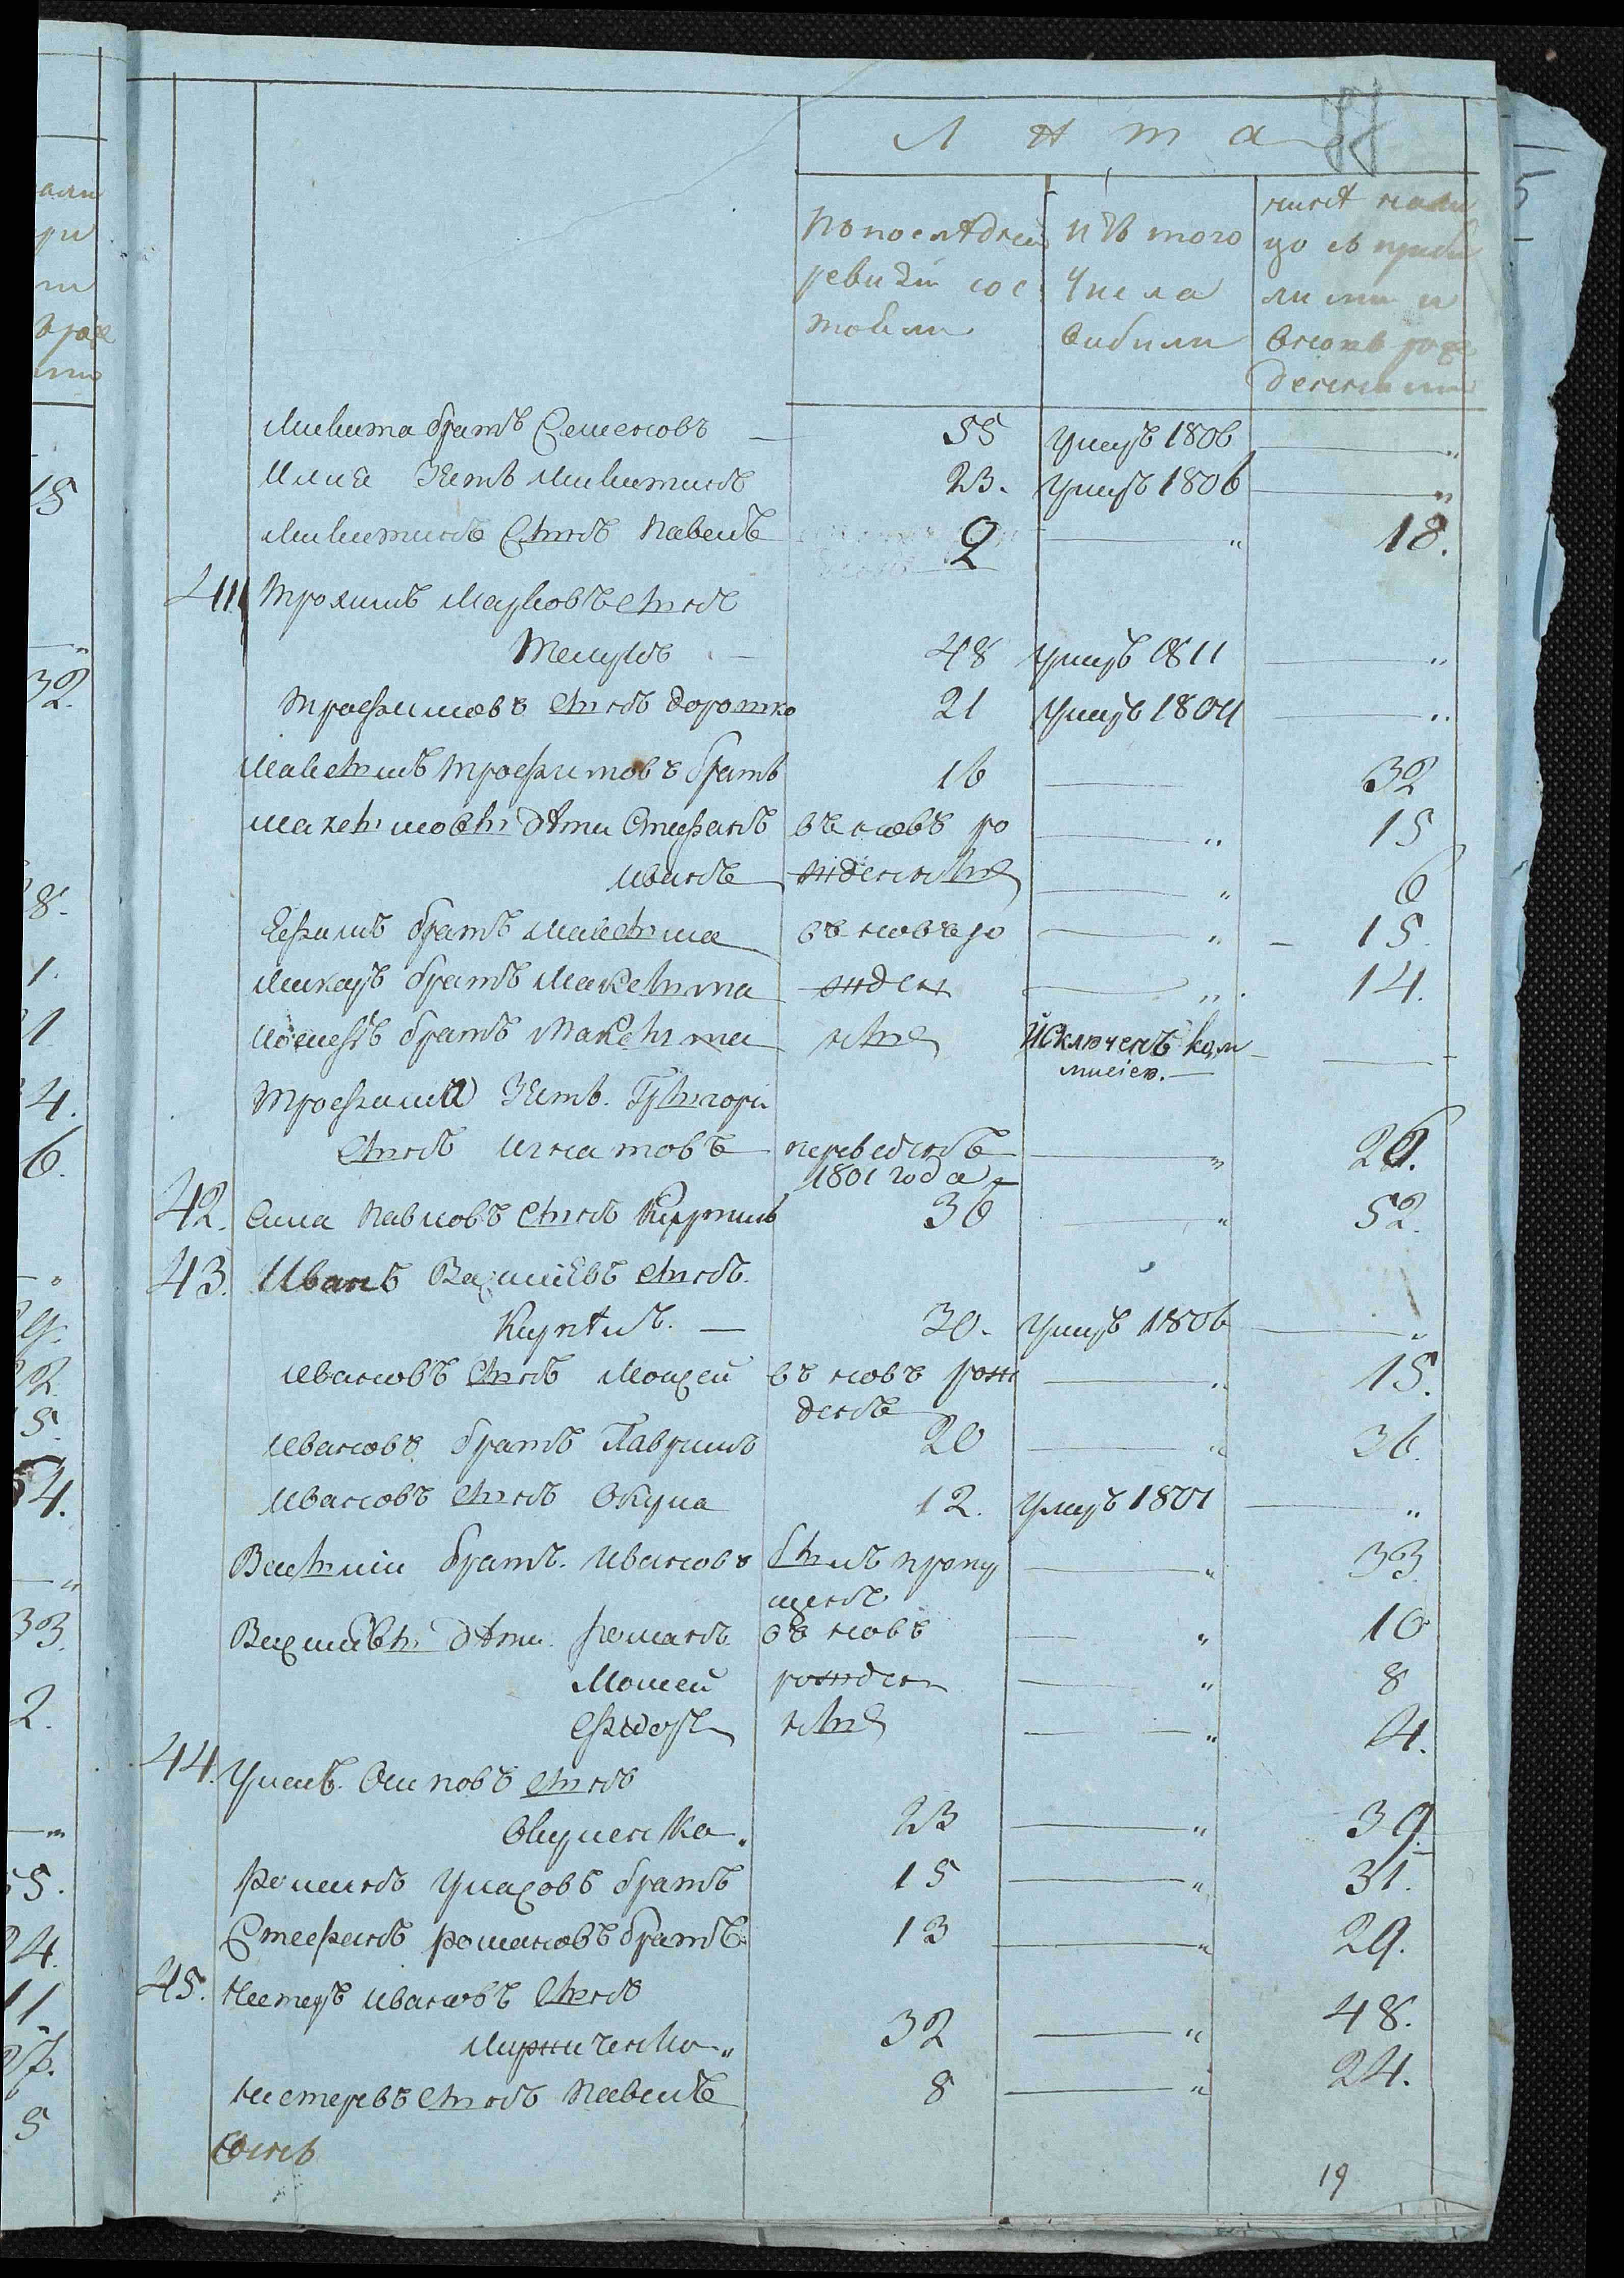 Лѣта
попослѣдней ревизіи состояли
изъ того числа выбыли
нынѣ налицо съ прибылими и вновь рожденными
Микита братъ Семеновъ — 55 умеръ 1806 — "
Илия зять Микитинъ 23. умеръ 1806 — "
Микитинъ сынъ Павелъ 2 — " 18.
41 Трохимъ Марковъ сынъ
— 48 умеръ 1811 — "
Трофимовъ сынъ 21 умеръ 1804 — "
Максимъ Трофимовъ братъ 16 — 32
Максимовы дѣти Стефанъ въ новъ ро — " 15
Иванъ жденные — " 6
Ефимъ братъ Максима въ новъ ро — " — 15.
Михаилъ братъ Максима жден — " 14.
братъ Максима ные Исключенъ ком —
мисіею. —
Трофима зять Григори
сынъ Игнатовъ переведенъ — " 26.
1801 года
42. Сила Павловъ сынъ 36 — " 52.
43. Иванъ Василіевъ сынъ
— 30. умеръ 1806 — "
Ивановъ сынъ Моисей въ новъ рож — " 15.
денъ
Ивановъ братъ Гаврилъ 20 — " 36.
Ивановъ сынъ 12. умеръ 1801 — "
Василій братъ Ивановъ былъ пропу — " 33
щенъ
Василіевы дѣти Романъ въ новъ — " 10
Моисей рожден — " 8
Федоръ ные — " 4.
44. Осиповъ сынъ
23 — " 39.
Романъ братъ 15 — " 31.
Стефанъ Романовъ братъ 13 — " 29.
45. Нестеръ Ивановъ сынъ
Мирниченко " 32 — " 48.
Нестеровъ сынъ Павелъ 8 — " 24.
19